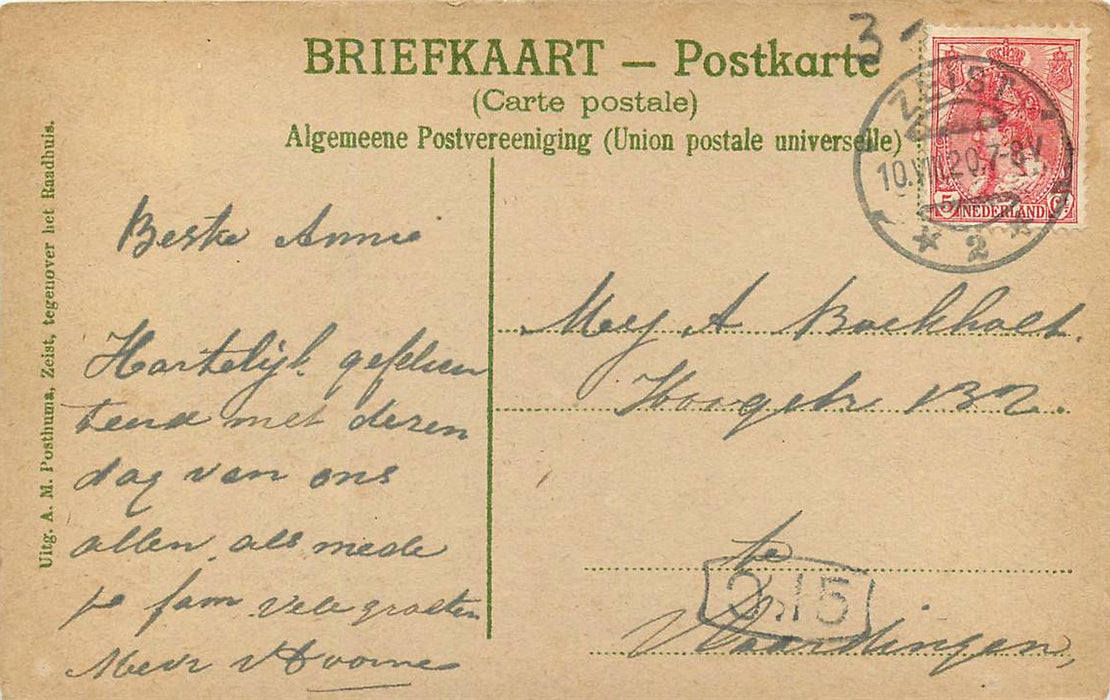 BRIEFKAART — Postkarte
(Carte postale)
Algemeene Postvereeniging (Union postale universelle)
3
ZEIST
10.VIII.20.7-8V
* 2 *
5 NEDERLAND Ct
Uitg. A. M. Posthuma, Zeist, tegenover het Raadhuis.
Beste Annie
Hartelijk gefelici
teerd met dezen
dag van ons
allen, als mede
je fam. Vele groeten
Mevr v Hoorne
Mej A Boekholt.
Hoogstr 132.
te
Vlaardingen,
215